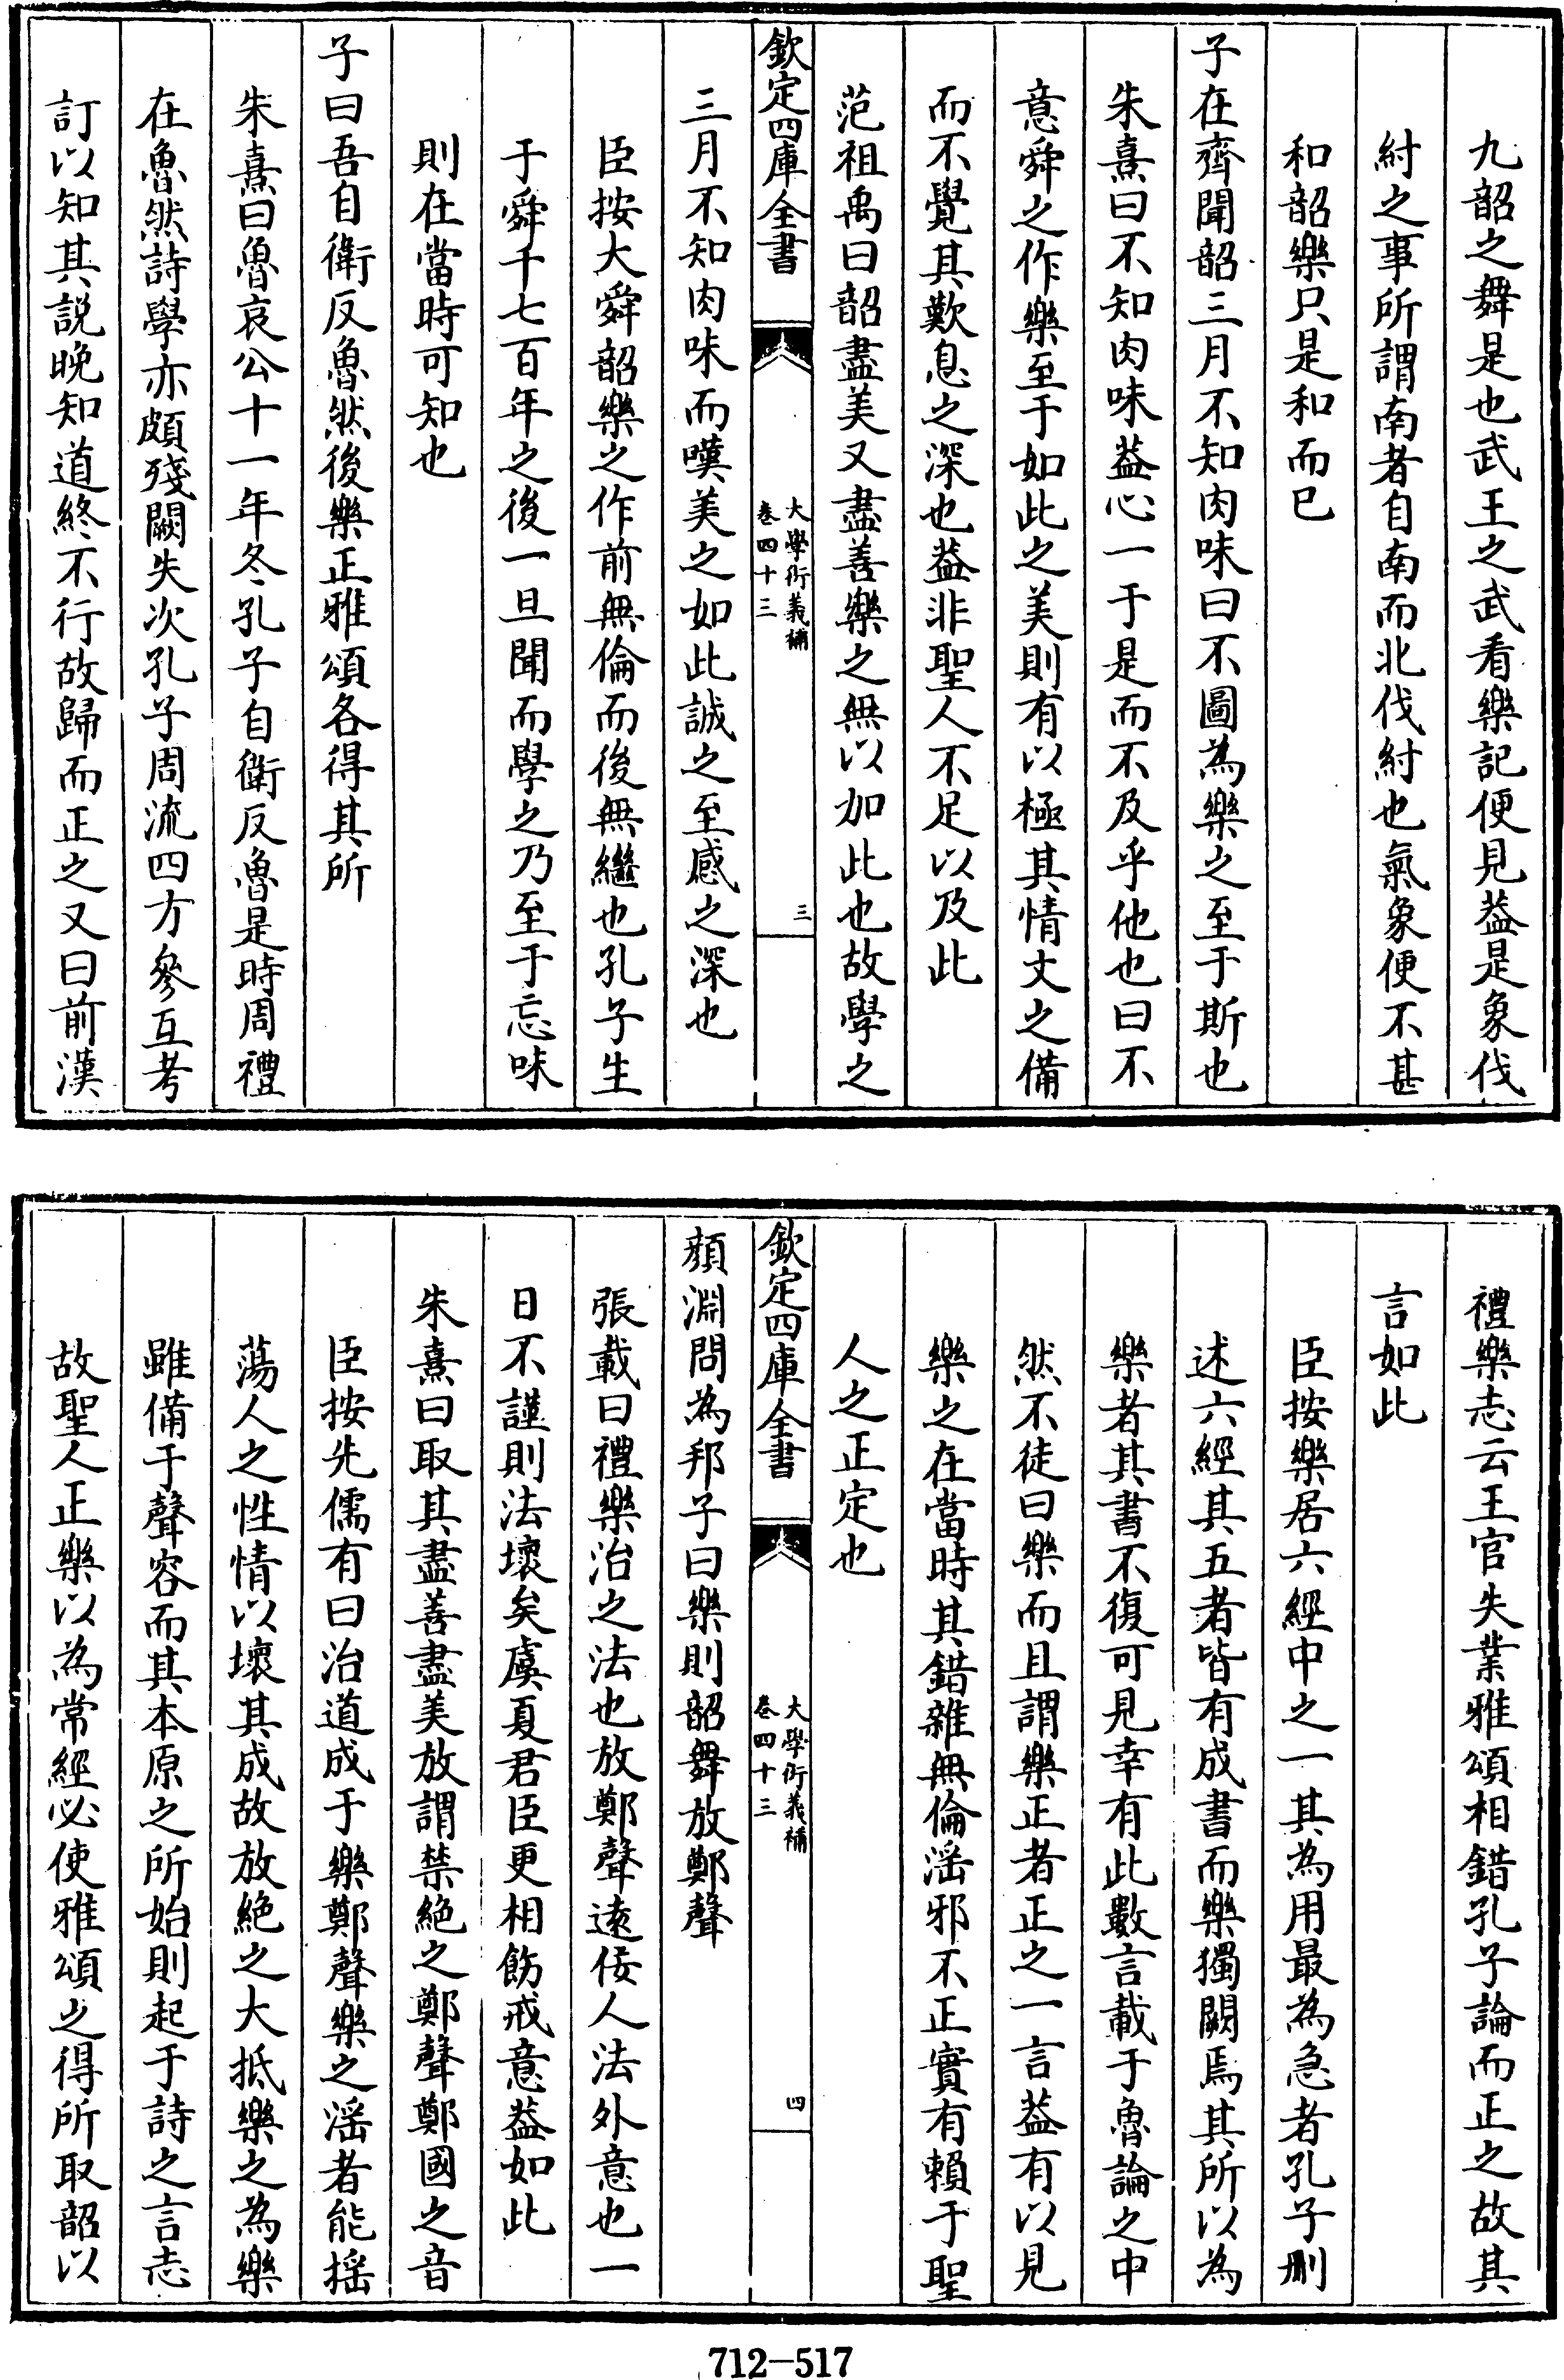 九韶之舞是也武王之武看樂記便見葢是象伐
紂之事所謂南者自南而北伐紂也氣象便不甚
和韶樂只是和而已
子在齊聞韶三月不知肉味曰不圖為樂之至于斯也
朱熹曰不知肉味葢心一于是而不及乎他也曰不
意舜之作樂至于如此之美則有以極其情文之備
而不覺其歎息之深也葢非聖人不足以及此
范祖禹曰韶盡美又盡善樂之無以加此也故學之
欽定四庫全書
大學衍義補
卷四十三
三
三月不知肉味而嘆美之如此誠之至感之深也
臣按大舜韶樂之作前無倫而後無繼也孔子生
于舜千七百年之後一旦聞而學之乃至于忘味
則在當時可知也
子曰吾自衛反魯然後樂正雅頌各得其所
朱熹曰魯哀公十一年冬孔子自衛反魯是時周禮
在魯然詩學亦頗殘闕失次孔子周流四方參互考
訂以知其説晚知道終不行故歸而正之又曰前漢
禮樂志云王官失業雅頌相錯孔子論而正之故其
言如此
臣按樂居六經中之一其為用最為急者孔子刪
述六經其五者皆有成書而樂獨闕焉其所以為
樂者其書不復可見幸有此數言載于魯論之中
然不徒曰樂而且謂樂正者正之一言葢有以見
樂之在當時其錯雜無倫滛邪不正實有賴于聖
人之正定也
欽定四庫全書
大學衍義補
卷四十三
四
顔淵問為邦子曰樂則韶舞放鄭聲
張載曰禮樂治之法也放鄭聲遠佞人法外意也一
日不謹則法壞矣虞夏君臣更相飭戒意葢如此
朱熹曰取其盡善盡美放謂禁絶之鄭聲鄭國之音
臣按先儒有曰治道成于樂鄭聲樂之滛者能揺
蕩人之性情以壞其成故放絶之大抵樂之為樂
雖備于聲容而其本原之所始則起于詩之言志
故聖人正樂以為常經必使雅頌之得所取韶以
712-517